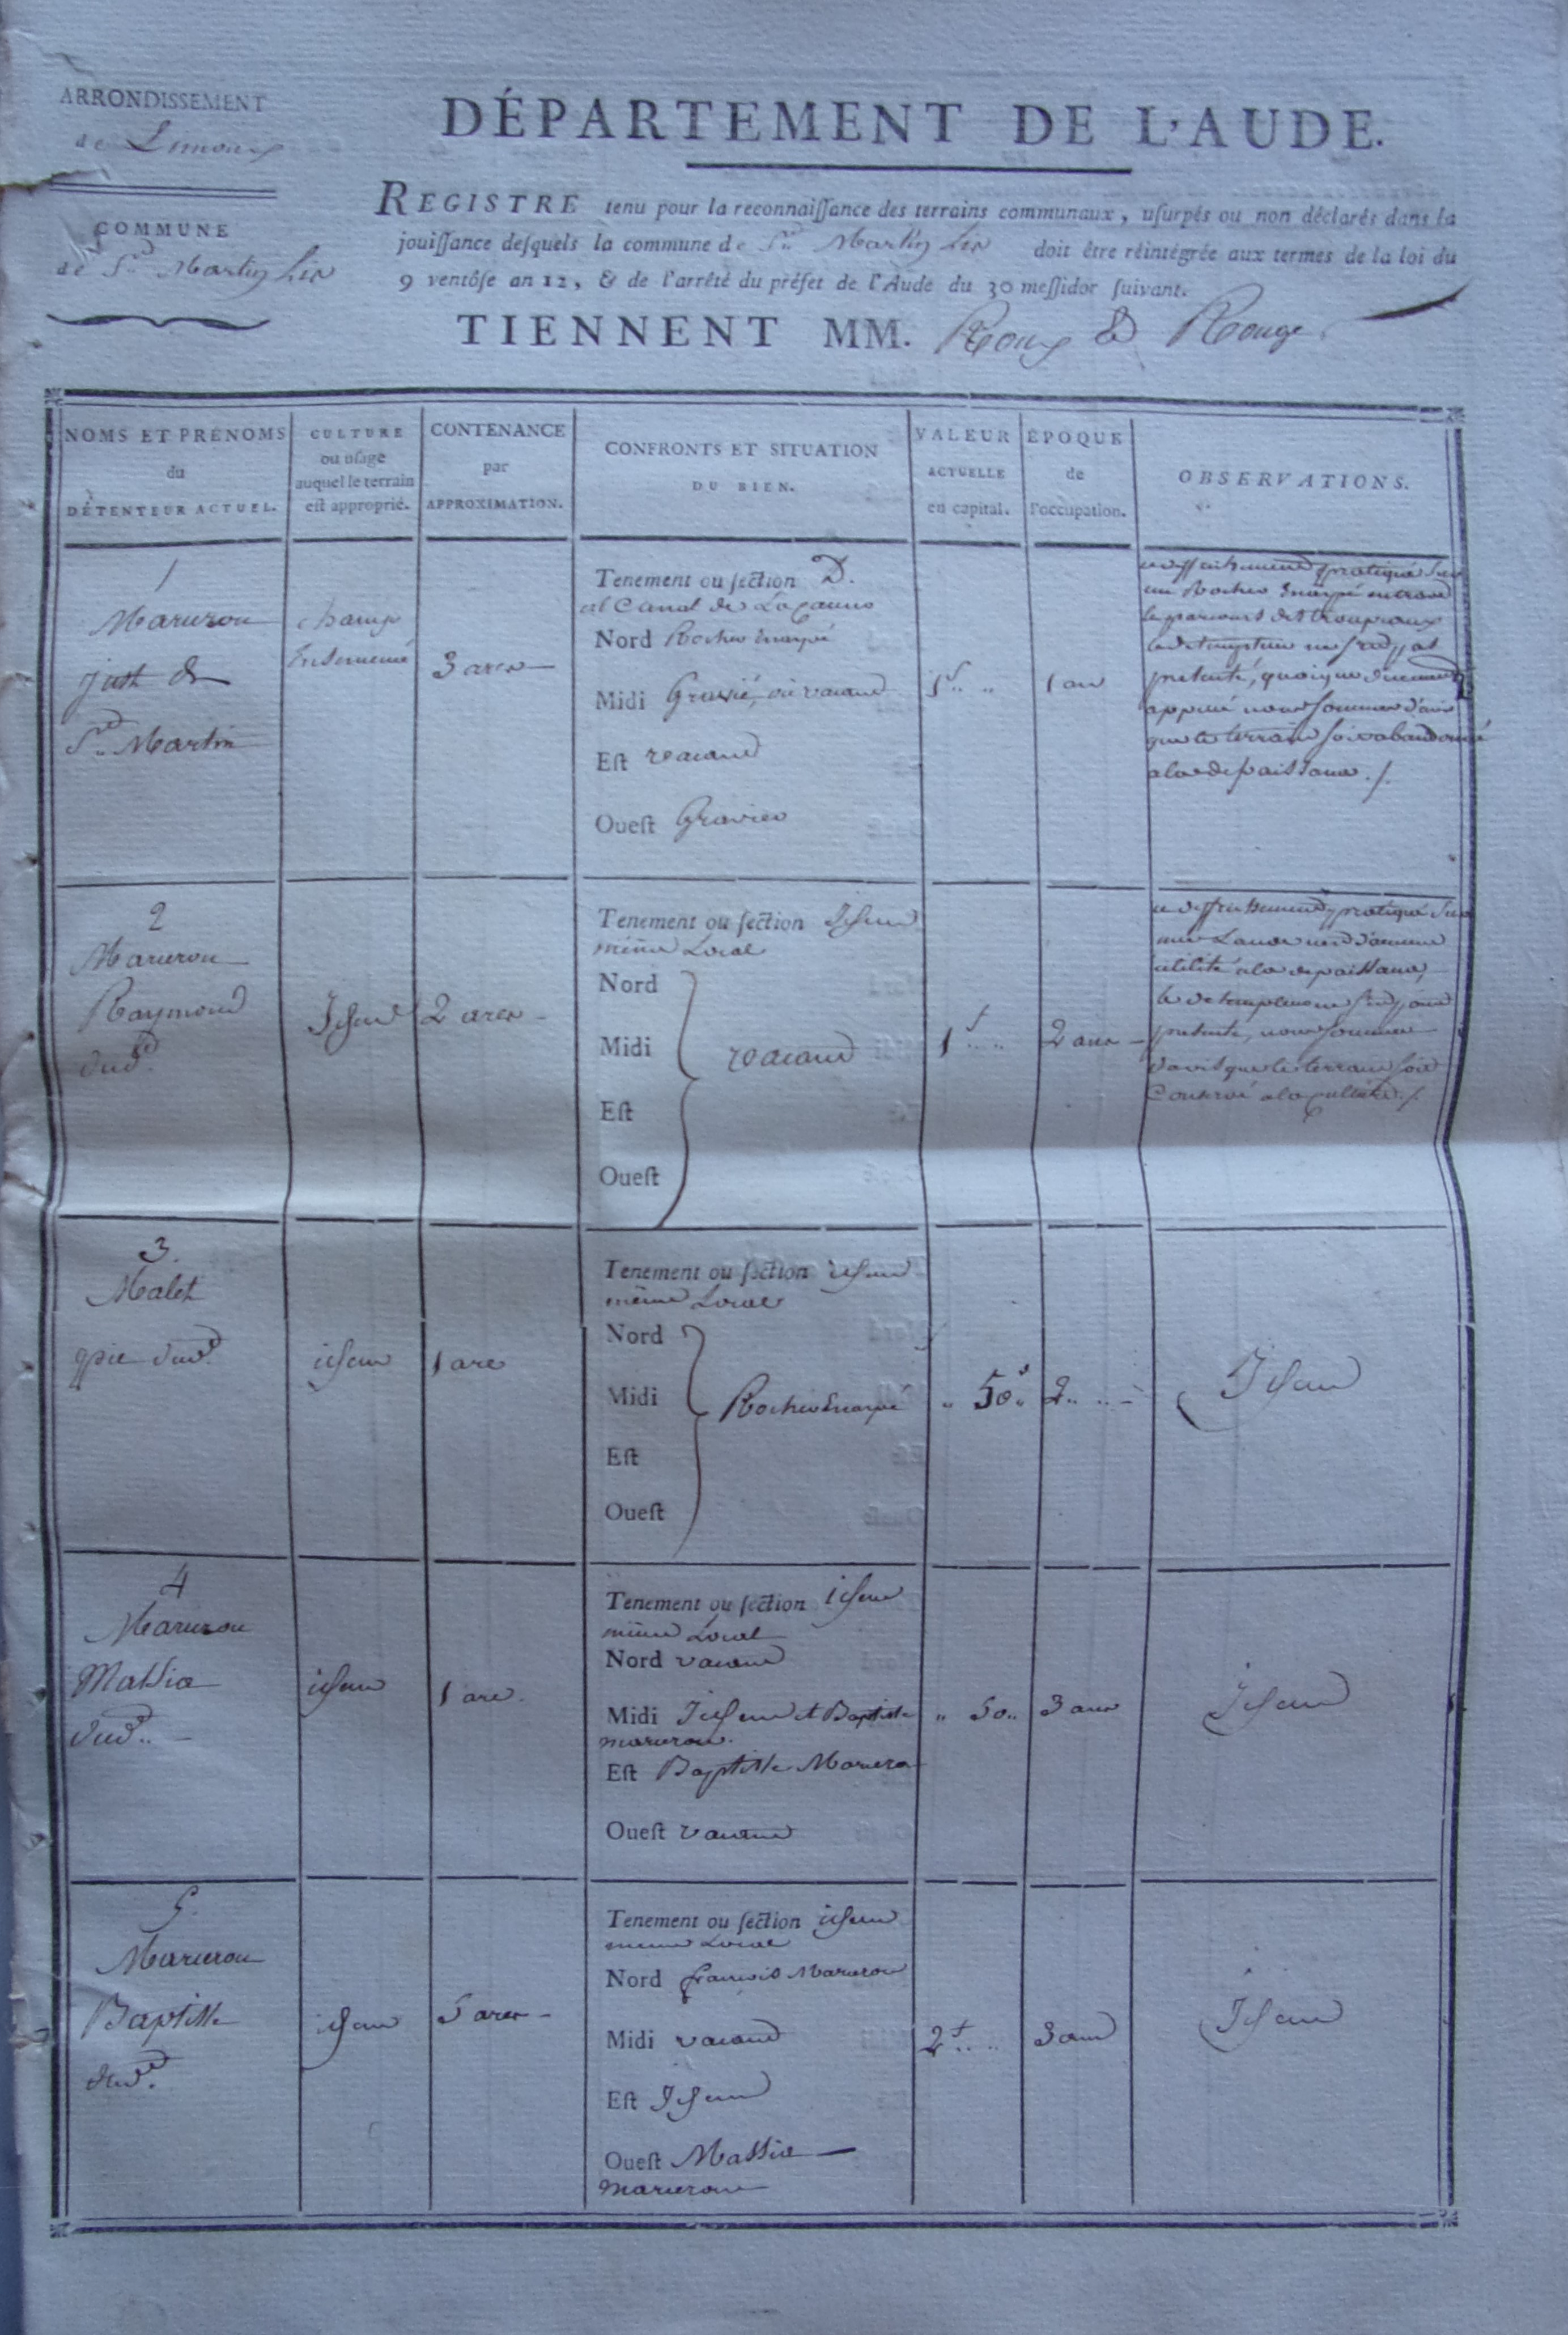 ARRONDISSEMENT
de Limoux
COMMUNE
de St. Martin Lis
DÉPARTEMENT DE L'AUDE.
REGISTRE tenu pour la reconnaiſſance des terrains communaux, uſurpés ou non déclarés dans la
jouiſſance deſquels la commune de St. Martin Lis doit être réintégrée aux termes de la loi du
9 ventôſe an 12, & de l'arrêté du préfet de l'Aude du 30 meſſidor ſuivant.
TIENNENT MM. Roux & Rouge
NOMS ET PRÉNOMS
du
DÉTENTEUR ACTUEL.
CULTURE
ou uſage
auquel le terrain
eſt approprié.
CONTENANCE
par
APPROXIMATION.
CONFRONTS ET SITUATION
DU BIEN.
VALEUR
ACTUELLE
en capital.
ÉPOQUE
de
l'occupation.
OBSERVATIONS.
1
just de
St. Martin
champ
3 ares
Tenement ou ſection D.
al Canal de
Nord Rocher Escarpé
Midi ou vacant
Eſt vacant
Oueſt Gravier
1f
1 an
ce deffrichement pratiqué sur
un Rocher Escarpé entrave
le parcours des troupeaux
ne s'est pas
présenté, quoique duement
appelé nous sommes d'avis
que le terrain soit abandonné
a la depaissance ./.
2
Raymond
dud.
Idem
2 ares
Tenement ou ſection Idem
même Local
Nord
Midi
Eſt
Oueſt
vacant
1f
2 ans
ce deffrichement pratiqué sur
une Lande n'est d'aucune
utilité a la depaissance,
présenté, nous sommes
d'avis que le terrain soit
Conservé a la culture ./.
3.
Malet
dud.
idem
1 are
Tenement ou ſection idem
même Local
Nord
Midi
Eſt
Oueſt
Rocher Escarpé
" 50 "
2 "
Idem
4
Mathie
dud.
idem
1 are.
Tenement ou ſection idem
même Local
Nord vacant
Midi Idem et Baptiste
Eſt Baptiste
Oueſt vacant
" 50 "
3 ans
Idem
5.
Baptiste
dud.
idem
5 ares
Tenement ou ſection idem
même Local
Nord françois
Midi vacant
Eſt Idem
Oueſt Mathie
2f
3 ans
Idem